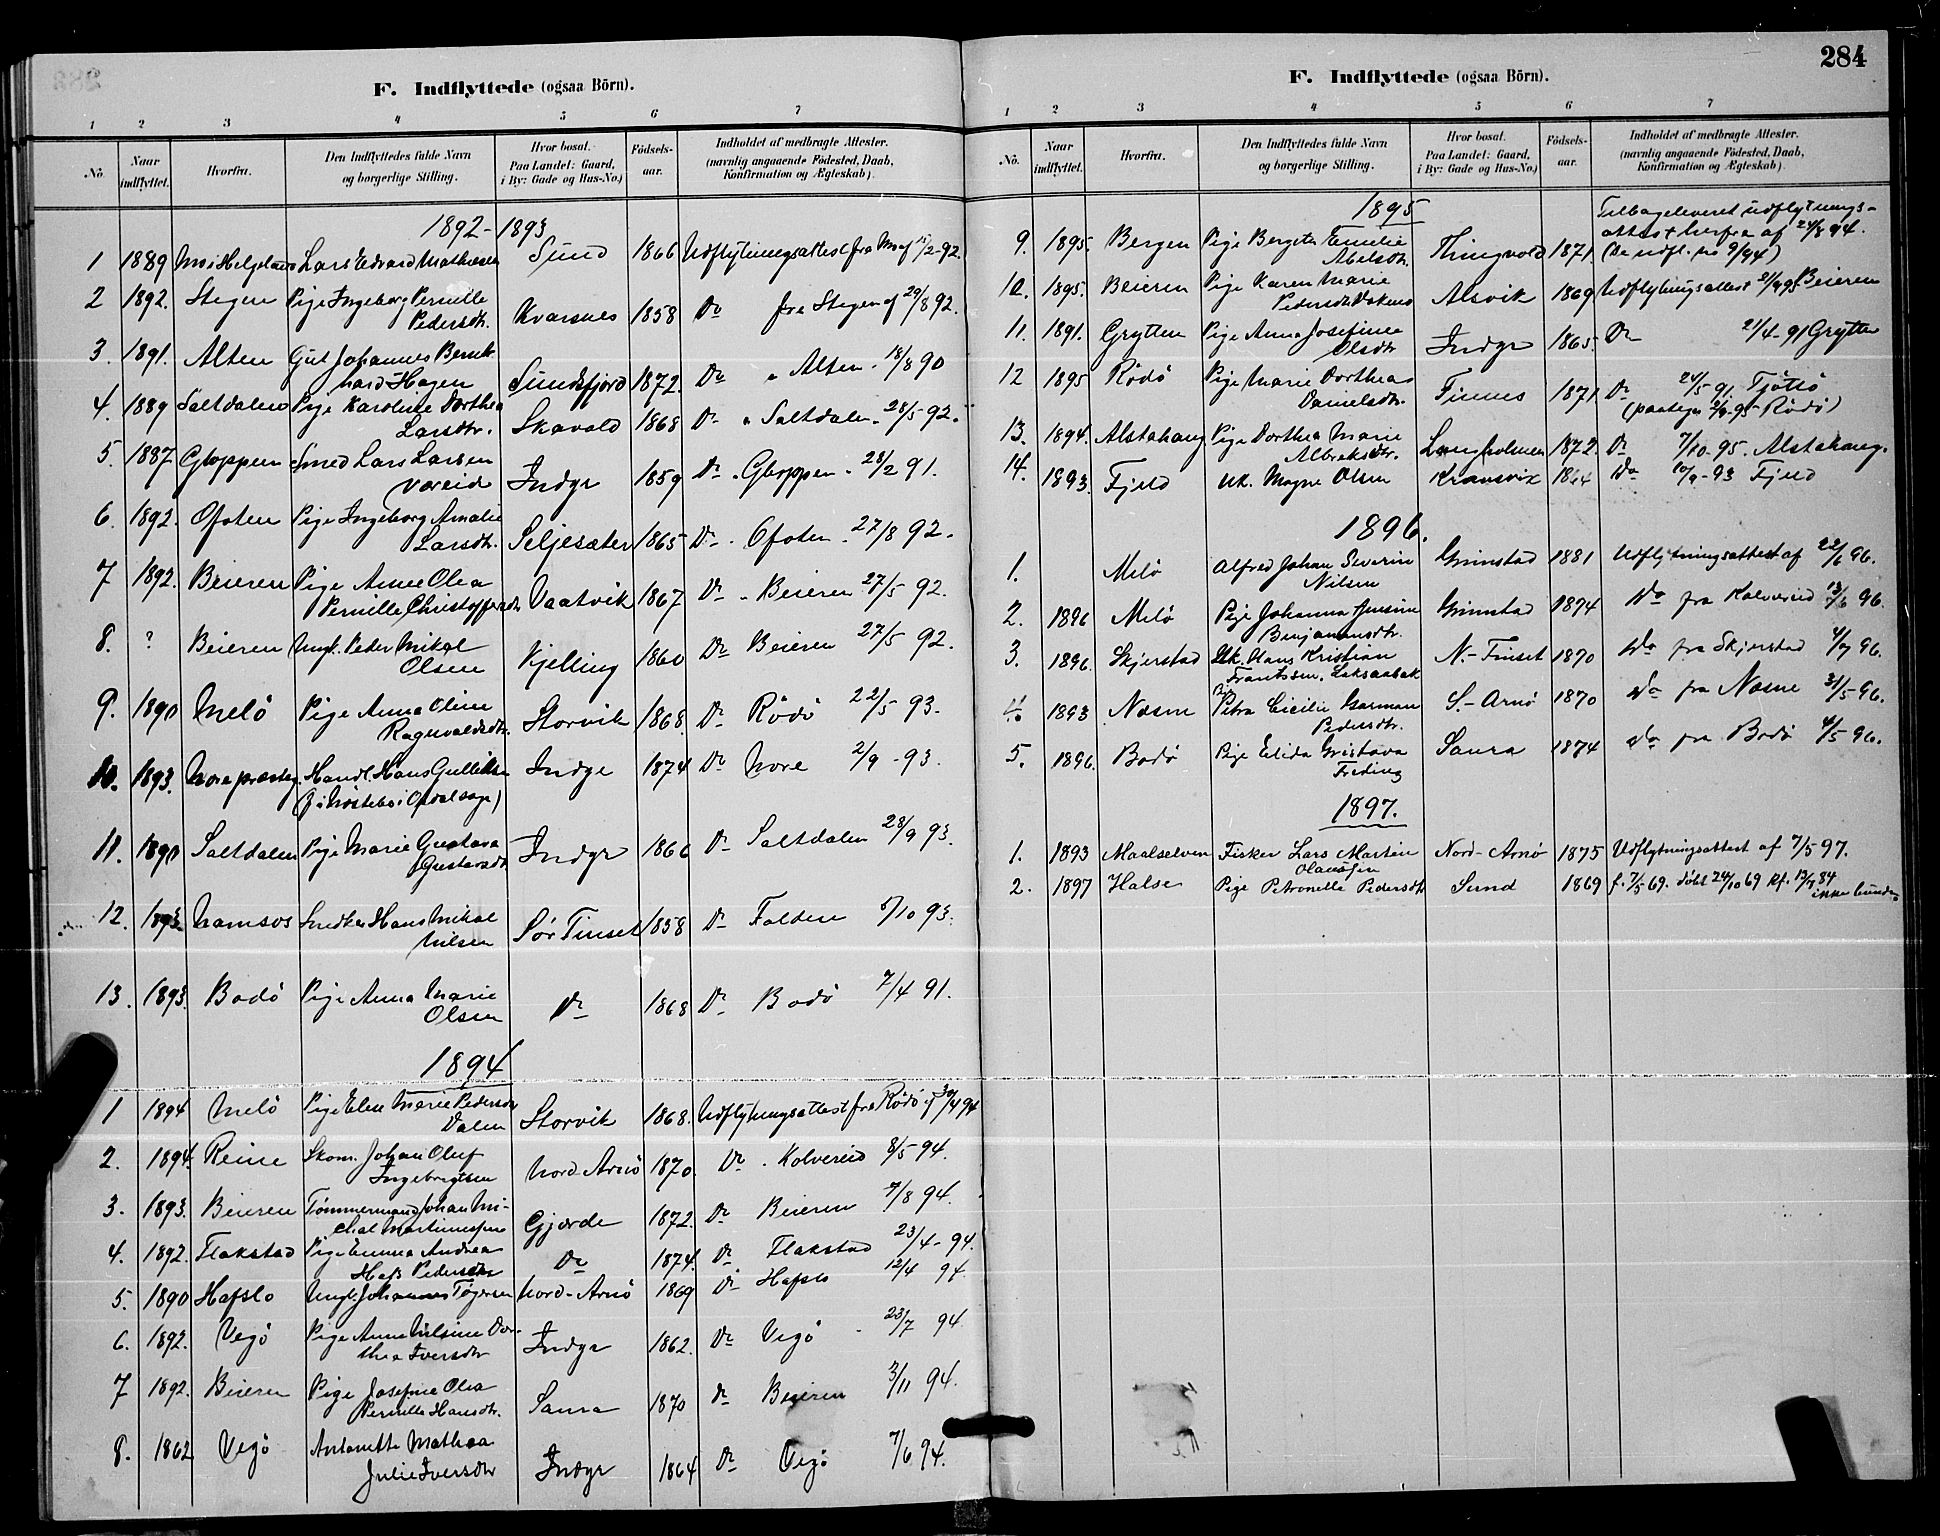 F. Indflyttede (ogsaa Börn).
1 2 3 4 5 6 7
No. Naar indflyttet. Hvorfra. Den Indflyttedes fulde Navn og borgerlige Stilling. Hvor bosat. Paa Landet: Gaard, i By: Gade og Hus-No.) Födsels-aar. Indholdet af medbragte Attester. (navnlig angaaende Födested, Daab, Konfirmation og Ægteskab).
1892-1893
1 1889 Mo i Helgeland Lars Edvard Mathisen Sund 1866 Udflytningsattest fra Mo af /2-92.
2 1892. Stegen Pige Ingeborg Pernille Pedersdtr. Kvarsnes 1858 Do fra Stegen af 29/8 92.
3. 1891. Alten Gut Johannes Bernhard Hagen Sundsfjord 1872. Do " Alten 18/8 90
4. 1889 Saltdalen Pige Karoline Dorthea Larsdtr. Skavold 1868 Do " Saltdalen 28/5-92.
5. 1887 Gloppen Smed Lars Larsen Voreid Indyr 1859 Do " Gloppen 28/2 91.
6. 1892. Ofoten Pige Ingeborg Amalie Larsdtr. Seljesæter 1865 Do " Ofoten 27/8 92.
7 1892. Beieren Pige Anne Olea Pernille Christoffersdtr Vaatvik 1867 Do " Beieren 27/5 92.
8. ? Beieren Ungk. Peder Mikal Olsen Kjelling 1860 Do Beieren 27/5 92.
9. 1890 Melö Pige Anna Oline Ragnvaldsdtr. Storvik 1868. Do Rödö 22/5 93.
10. 1893. Nore præsteg. Handl. Hans Gulliksen Indyr 1874 Do Nore 2/9 -93.
11. 1890 Saltdalen Pige Marie Gustava Gustavsdtr Indyr 1866 Do Saltdalen 28/9 93.
12. 1893. Namsos Snedker Hans Mikal Nilsen Sör Finset 1858 Do Folden 5/10 93.
13. 1893. Bodö Pige Anna Marie Olsen Do 1868 Do Bodö 7/4 91.
1894
1 1894 Melö Pige Elen Marie Pedersen Dalen Storvik 1868. Udflytningsattest fra Rödö af 30/4 94
2. 1894. Reine Skom. Johan Oluf Ingebrigtsen Nord-Arnö 1870. Do " Kolvereid 8/5-94.
3. 1893. Beieren Tömmermand Johan Michal Martinussen Gjærde 1872. Do Beieren 7/8 94.
4. 1892. Flakstad Pige Emma Andrea Hass Pedersdtr Do 1874. Do Flakstad 23/4-94.
5. 1890 Hafslo Ungk. Johannes Tögersen Nord-Arnö 1869 Do Hafslo 12/4 94.
6. 1892. Vegö Pige Anne Nilsine Dorthea Iversdtr Indyr 1862. Do Vegö 23/7 94
7 1892. Beieren Pige Josefine Olea Pernille Hansdtr. Saura 1870 Do Beieren 3/11 94.
8. 1862 Vegö Antonette Mathea Julie Iversdtr Indyr 1864 Do Vegö 7/6 94.
284
F. Indflyttede (ogsaa Börn).
1 2 3 4 5 6 7
No. Naar indflyttet. Hvorfra. Den Indflyttedes fulde Navn og borgerlige Stilling. Hvor bosat. Paa Landet: Gaard, i By: Gade og Hus-No.) Födsels-aar. Indholdet af medbragte Attester. (navnlig angaaende Födested, Daab, Konfirmation og Ægteskab).
1895
9. 1895. Bergen Pige Bergite Emilie Abelsdtr. Thingvold 1871 Tilbageleveret udflytnings-attest herfra af 24/8 94. (Se udfl. no 9/94)
10. 1895. Beieren Pige Karen Marie Pedersdtr Alsvik 1869 Udflytningsattest 21/4 95 Beieren
11. 1891. Grytten Pige Anna Josefine Olsdtr Indyr 1865. Do 21/4-91 Grytten
12 1895 Rödö Pige Marie Dorthea Danielsdtr. Finnes 1871 Do 24/5-91. Tjöttö (paategn. 2/9-95 Rödö)
13. 1894. Alstahaug Pige Dorthea Marie Albrektsdtr. Langholmen 1872. Do 7/10-95. Alstahaug.
14. 1893. Fjeld Uk. Mogne Olsen Kraasvik 1864 Do 10/9-93 Fjeld
1896.
1. Melö Alfred Johan Severin Nilsen Grimstad 1881 Udflytningsattest af 22/6 96.
2. 1896 Melö Pige Johanna Jensine Benjaminsdtr. Grimstad 1874 Do fra Kolvereid 13/6 96.
3. 1896. Skjerstad Uk. Hans Kristian Frantssen, Laksaabak N.-Finset 1870 Do fra Skjerstad 4/7 96.
4. 1893 Næsne Pige Petra Cicilie Garman Pedersdtr. S.-Arnö 1870 Do fra Næsne 31/5-96.
5. 1896. Bodö Pige Elida Gustava Freding Saura 1874 Do fra Bodö 4/5 96.
1897.
1. 1893 Maalselven Fisker Lars Martin Olaussen Nord-Arnö 1875 Udflytningsattest af 7/5 97.
2. 1897 Halse Pige Petronelle Pedersdtr Sund 1869 f. 7/5 69. döbt 24/10 69 Kf. 13/7 84 ikke bunden